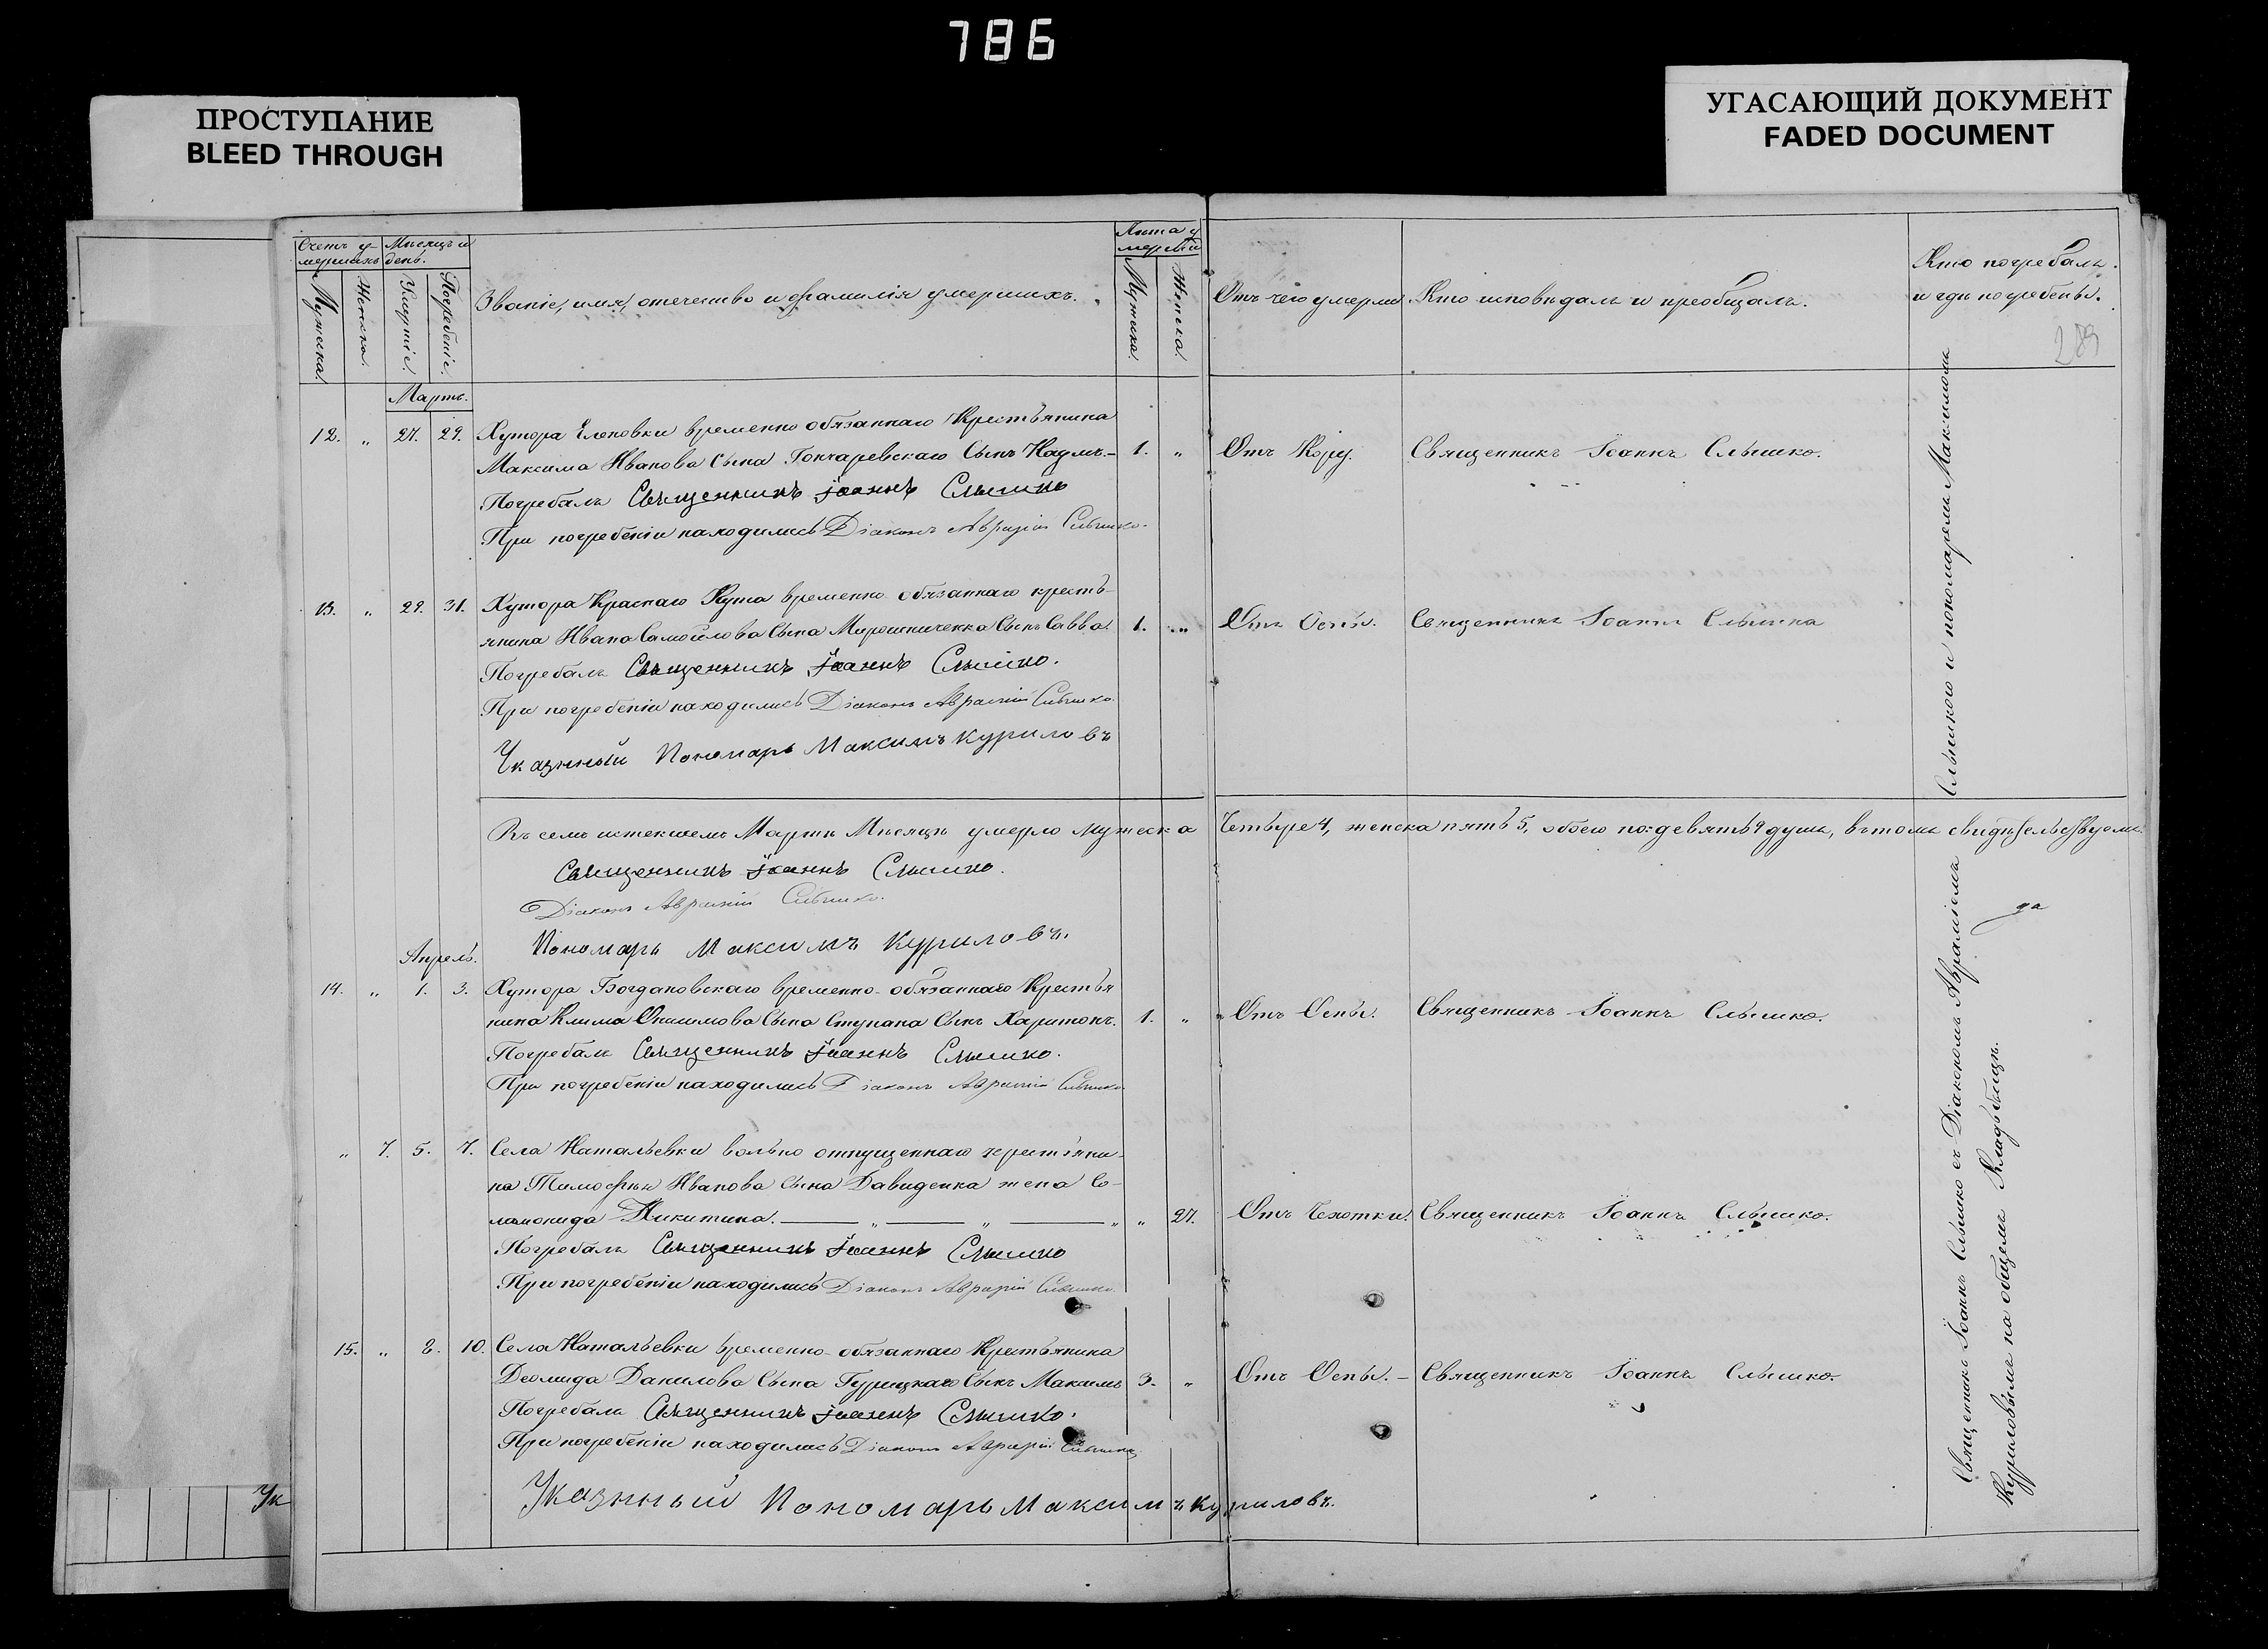 786
ПРОСТУПАНИЕ
BLEED THROUGH
УГАСАЮЩИЙ ДОКУМЕНТ
FADED DOCUMENT
Счетъ у-
мершихъ
Мѣсяцъ и
день.
Мужеска.
Женска.
Умертіе.
Погребеніе.
Званіе, имя, отечество и фамилія умершихъ.
Лѣта у
мершій
Мужеска.
Женска.
Отъ чего умерли
Кто исповѣдалъ и пріобщалъ.
Кто погребалъ
и гдѣ погребены.
289
Мартъ.
12. " 27. 29. Хутора Еленовки временно обязаннаго Крестьянина
Максима Иванова Сына Гончаревскаго Сынъ Наумъ.- 1. " Отъ Кору. Священникъ Іоаннъ Слышко.
Погребалъ Священникъ Іоаннъ Слышко
При погребеніи находились Діаконъ Слышко.
13. " 29. 31. Хутора Краснаго Кута временно обязаннаго кресть-
янина Ивана Самойлова Сына Мирошниченка Сынъ Савва. 1. " Отъ Оспы. Священникъ Іоаннъ Слышко
Погребалъ Священникъ Іоаннъ Слышко.
При погребеніи находились Діаконъ Слышко
Указнный Пономарь Максимъ Куриловъ
Въ семъ истекшемъ Мартѣ Мѣсяцѣ умерло мужеска Четыре 4, женска пять 5, обоего по: девять 9 душъ, въ томъ свидѣтельствуемъ
Священникъ Іоаннъ Слышко.
Діаконъ Слышко.
Пономарь Максимъ Куриловъ.
Апрель.
14. " 1. 3. Хутора Богдановскаго временно-обязаннаго Крестья
нина Клима Онисимова Сына Ступака Сынъ Харитонъ. 1. " Отъ Оспы. Священникъ Іоаннъ Слышко.
Погребалъ Священникъ Іоаннъ Слышко.
При погребеніи находились Діаконъ Слышко
" 7. 5. 7. Села Натальевки вольно отпущеннаго крестьяни-
на Тимофѣя Иванова Сына Давиденка жена Со-
ломонида Никитина. " " " " 27. Отъ Чехотки. Священникъ Іоаннъ Слышко.
Погребалъ Священникъ Іоаннъ Слышко
При погребеніи находились Діаконъ Слышко
15. " 8. 10. Села Натальевки временно-обязаннаго Крестьянина
Деомида Данилова Сына Гурицкаго Сынъ Максимъ 3. " Отъ Оспы.- Священникъ Іоаннъ Слышко.
Погребалъ Священникъ Іоаннъ Слышко.
При погребеніи находились Діаконъ Слышко
Указнный Пономарь Максимъ Куриловъ.
Священникъ Іоаннъ Слышко съ Діакономъ Авраміемъ Слышкою и пономаремъ Максимомъ
Куриловымъ на общемъ Кладбищѣ.
да
Ук